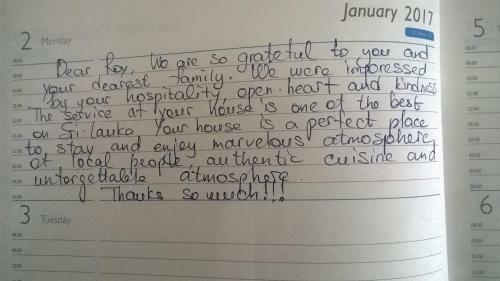 January 2017
2 Monday
Dear Roy, We are so grateful to you and
your dearest family. We were impressed
by your hospitality, open-heart and kindness
The service at your house is one of the best
on Sri Lanka. Your house is a perfect place
to stay and enjoy marvelous atmosphere
of local people, authentic cuisine and
unforgettable atmosphere.
Thanks so much!!!
3 Tuesday
5
6